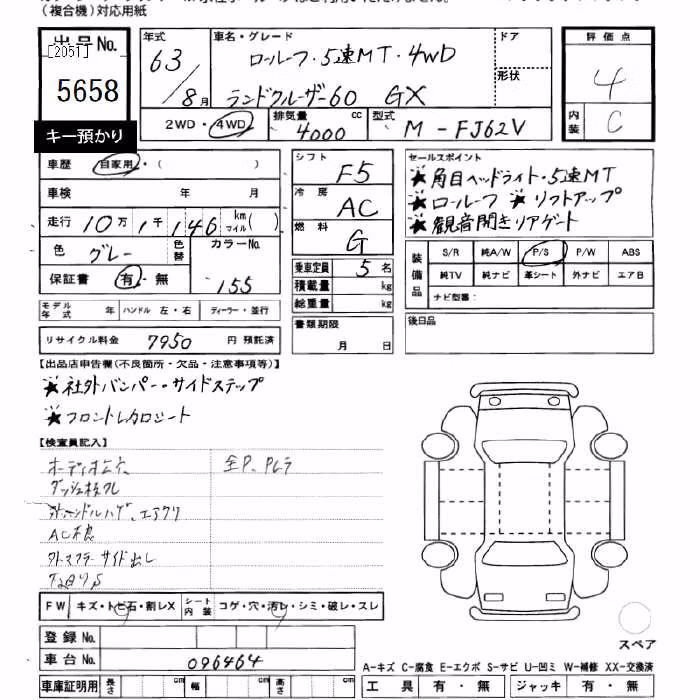 （複合機）対応用紙
出品No.
[2051]
5658
キー預かり
年式
63/8月
車名・グレード
ロールーフ・5速MT・4WD
ランドクルーザー60 GX
ドア
形状
評価点
4
内装
C
2WD・4WD
排気量
4000 cc
型式
M-FJ62V
車歴 自家用・( )
車検 年 月
走行 10万1千146 km マイル( )
色 グレー 色替
カラーNo. 155
保証書 有・無
モデル年式 年 ハンドル 左・右 ディーラー・並行
リサイクル料金 7950 円 預託済
シフト F5
冷房 AC
燃料 G
乗車定員 5名
積載量 kg
総重量 kg
書類期限
月 日
セールスポイント
★角目ヘッドライト・5速MT
★ロールーフ ★リフトアップ
★観音開きリアゲート
装備品
S/R 純A/W P/S P/W ABS
純TV 純ナビ 革シート 外ナビ エアB
ナビ型番：
後日品
【出品店申告欄(不良箇所・欠品・注意事項等)】
★社外バンパー・サイドステップ
★フロントレカロシート
【検査員記入】
AC不良
サイド出し
FW キズ・トビ石・割レX シート内装 コゲ・穴・汚レ・シミ・破レ・スレ
登録No.
車台No. 096464
車庫証明用 長さ cm 幅 cm 高さ cm
スペア
A-キズ C-腐食 E-エクボ S-サビ U-凹ミ W-補修 XX-交換済
工具 有・無 ジャッキ 有・無